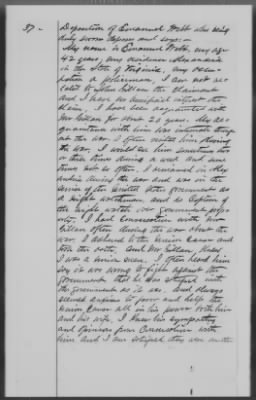 37-
Deposition of Emanuel Webb who being
duly sworn deposes and says:
My name is Emanuel Webb, my age
42 years, my residence Alexandria
in the State of Virginia, my occu-
pation a policeman, I am not re-
lated to John Gillam the Claimant
and I have no beneficial interest in the
Claim. I have been acquainted with
Mr Gillam for about 20 years. My ac-
quaintance with him was intimate through
out the war. I often visited him during
the war. I would see him sometimes two
or three times during a week and some
times not so often. I remained in Alex
andria during the war and was in the
service of the United States government as
a night watchman, and as Captain of
the night watch over government prop-
erty. I had Conversation with Mr
Gillam often during the war about the
war. I adhered to the Union Cause and
took the oath. And Mr Gillam knew
I was a Union man. I often heard him
say it was wrong to fight against the
government that he was satisfied with
the government as it was. And always
seemed anxious to favor and help the
Union Cause all in his power. Both him
and his wife. I knew his sympathy
and opinion from Conversation with
him and I am satisfied they were on the